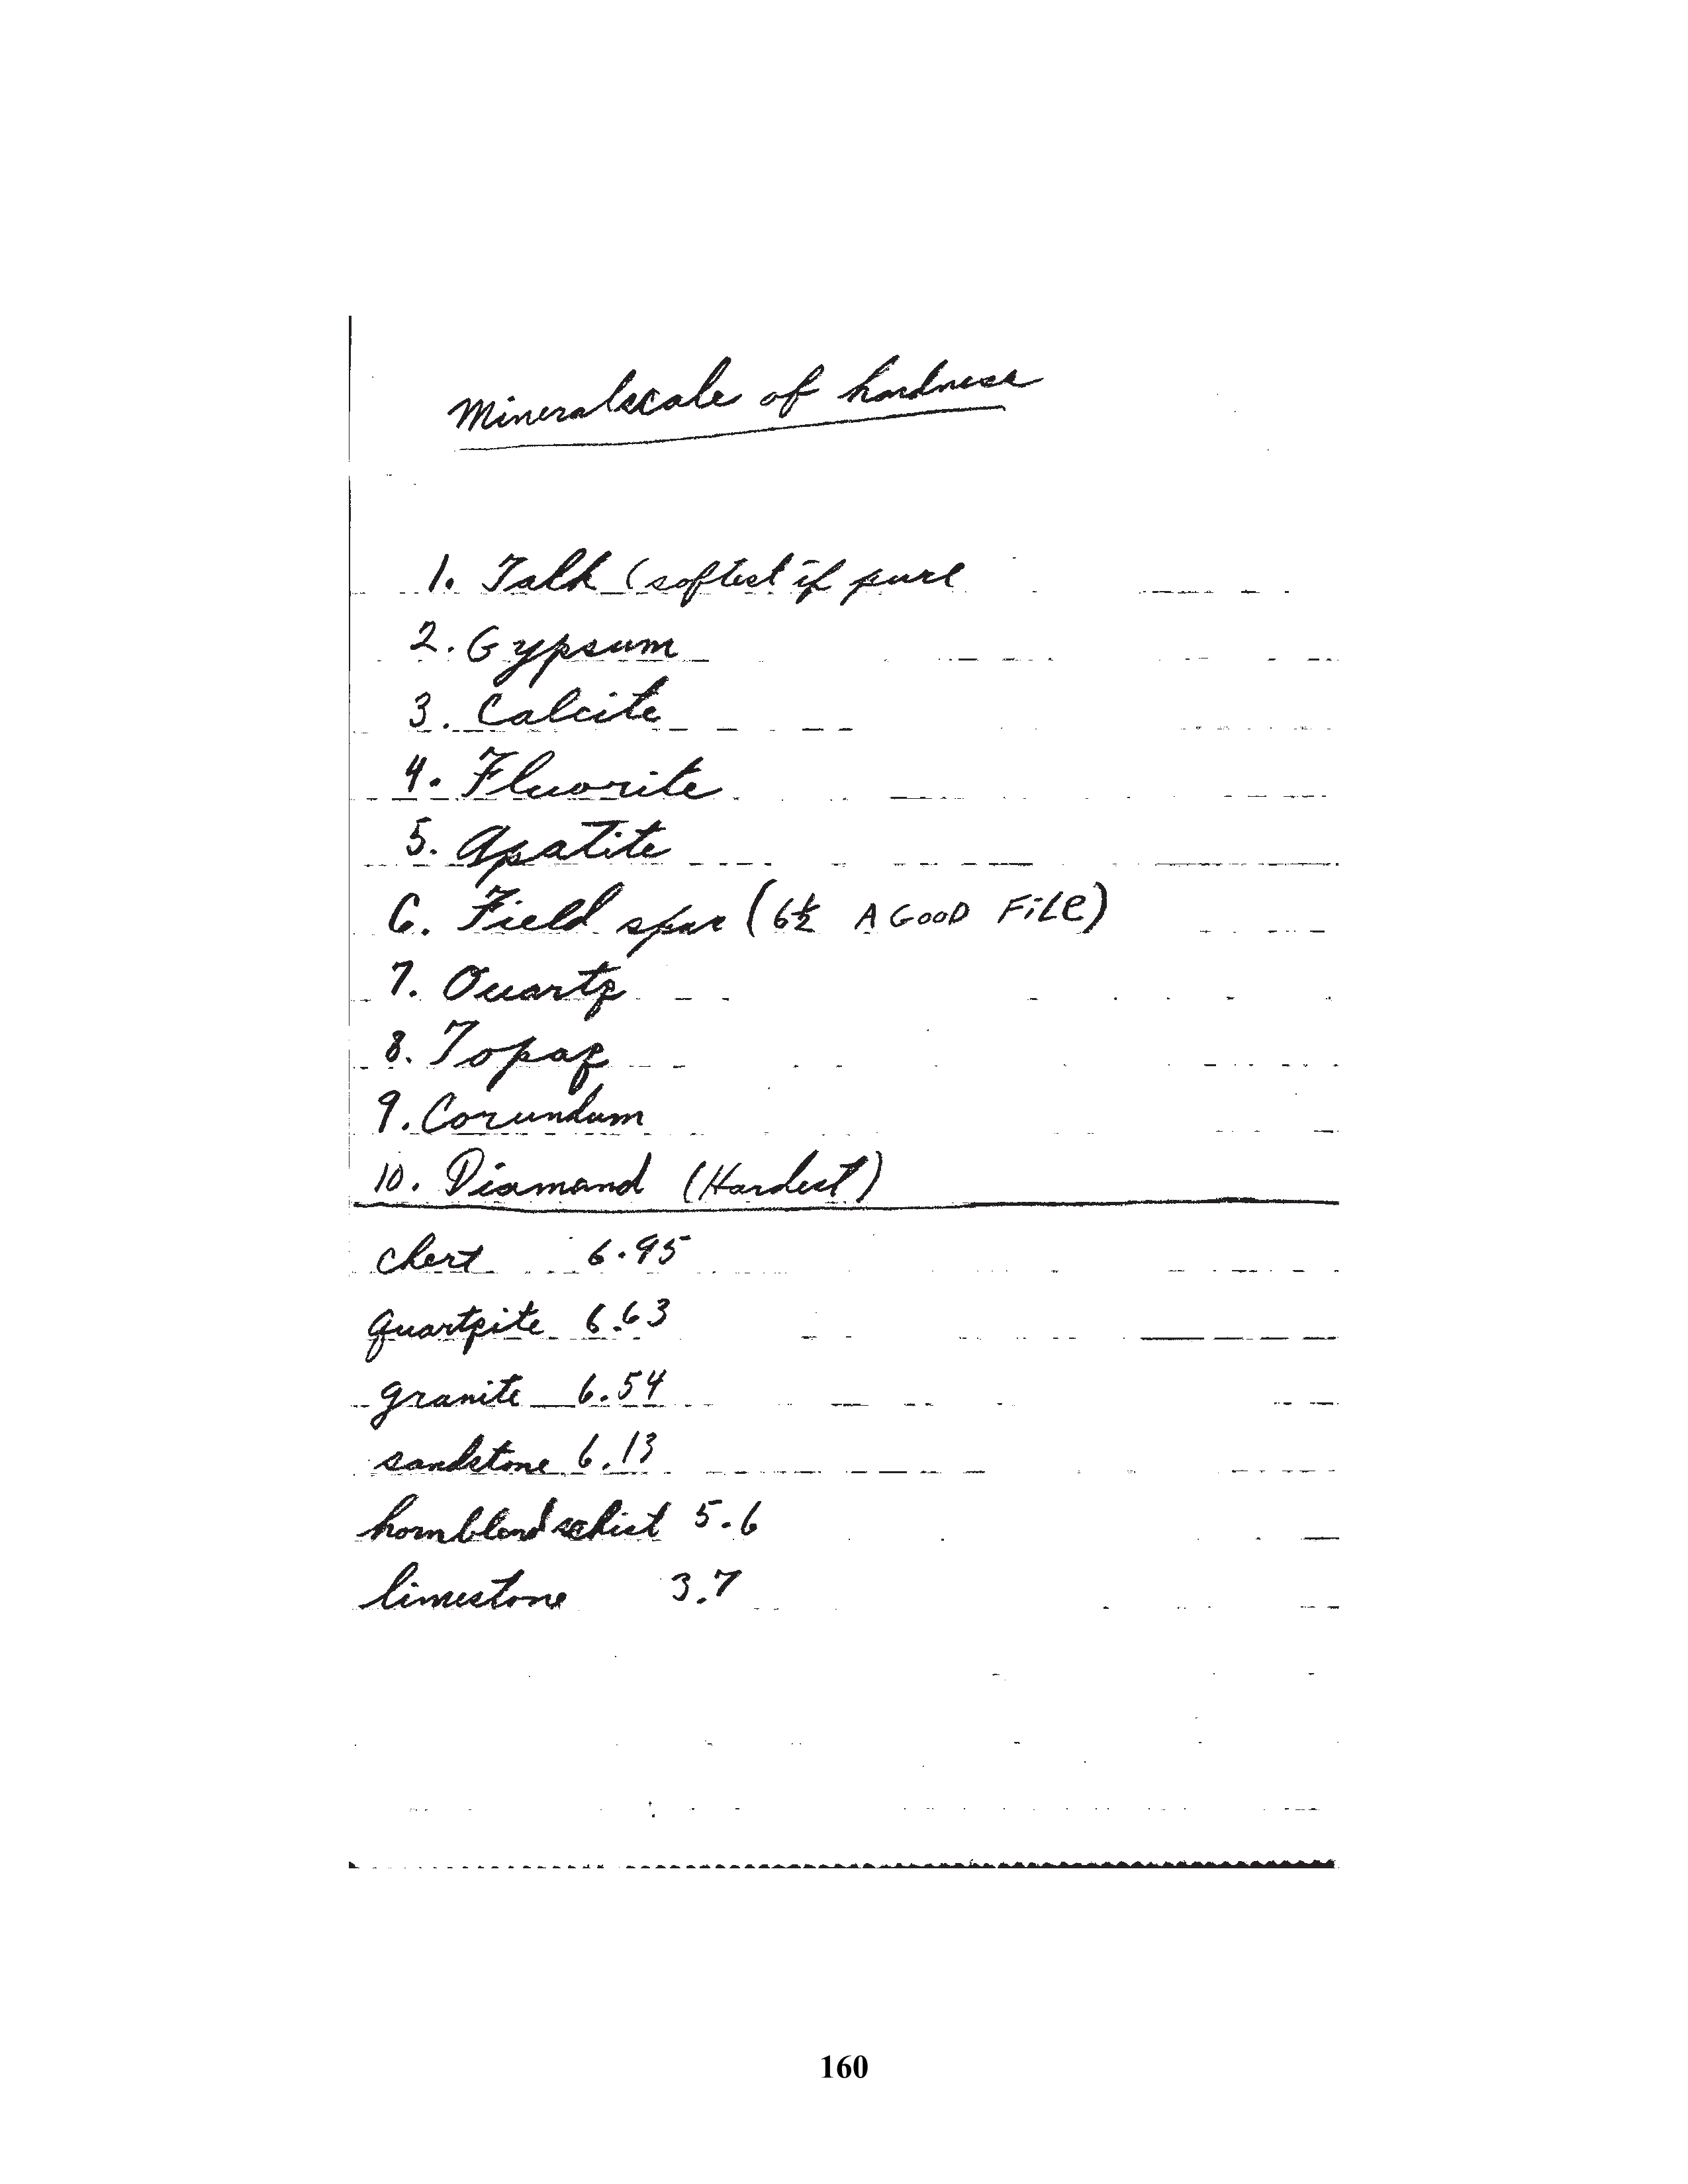 Mineralscale of hardness
1. Talk (softest if pure
2. Gypsum
3. Calcite
4. Fluorite
5. Apatite
6. Field spar (6½ A GOOD FiLe)
7. Quartz
8. Topaz
9. Corundum
10. Diamand (Hardest)
chert 6.95
quartzite 6.63
granite 6.54
sandstone 6.13
hornblend schist 5.6
limestone 3.7
160